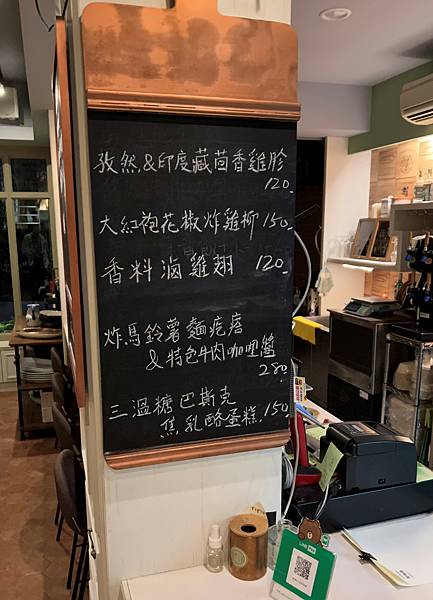 孜然&印度藏茴香雞胗
120.
大紅袍花椒炸雞柳 150.
香料滷雞翅 120.
炸馬鈴薯麵疙瘩
&特色牛肉咖哩醬
280.
三溫糖巴斯克
焦乳酪蛋糕. 150.
LINE